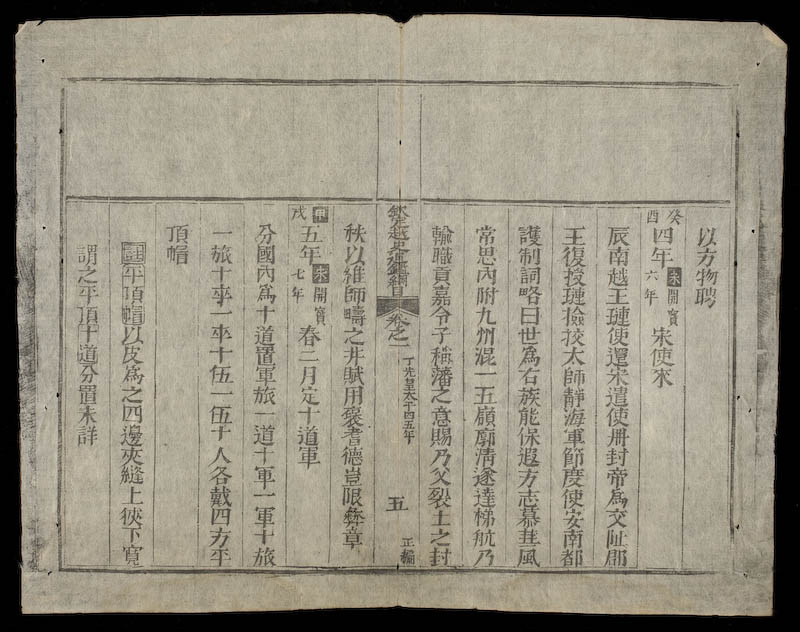 以方物聘
癸酉四年宋開寶六年宋使來
辰南越王璉使還宋遣使册封帝爲交阯郡
王復授璉撿挍太師靜海軍節度使安南都
護制詞略曰世爲右族能保遐方志慕華風
常思內附九州混一五嶺廓清遂達梯航乃
輸職貢嘉令子稱藩之意賜乃父裂土之封
欽定越史通鑑綱目 卷之一 丁先皇太平四五年 五 正編
秩以維師疇之井賦用褒耆德豈限彝章
甲戌五年宋開寶七年春二月定十道軍
分國內爲十道置軍旅一道十軍一軍十旅
一旅十卒一卒十伍一伍十人各戴四方平
頂帽
註平頂帽以皮爲之四邊夾縫上狹下寬
謂之平頂十道分置未詳